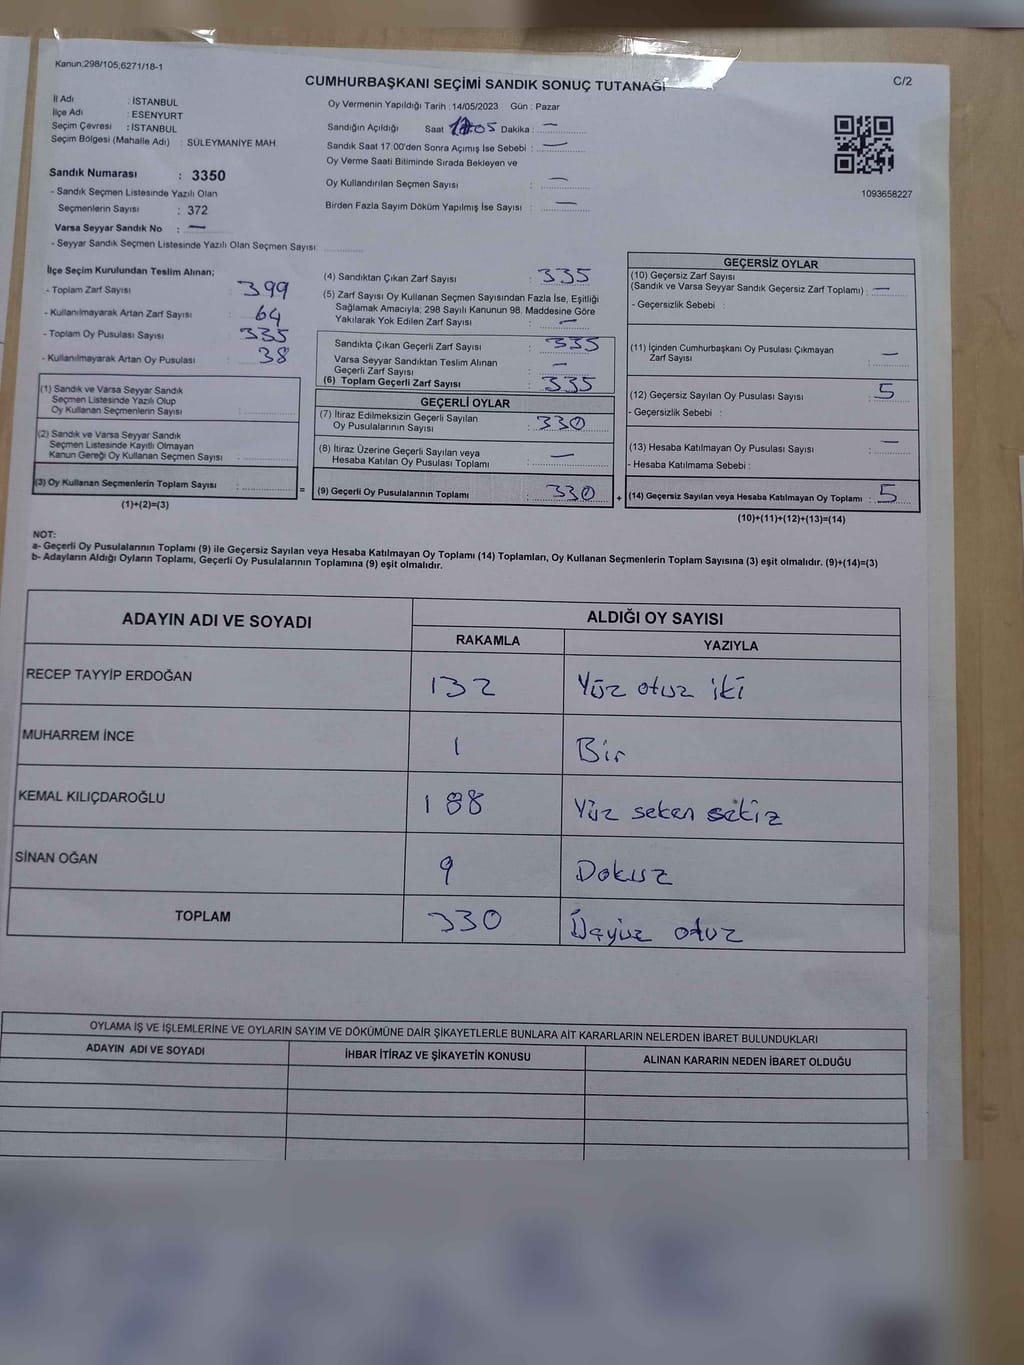 Kanun;298/105,6271/18-1
C/2
CUMHURBAŞKANI SEÇİMİ SANDIK SONUÇ TUTANAĞI
İl Adı : İSTANBUL
İlçe Adı : ESENYURT
Seçim Çevresi : İSTANBUL
Seçim Bölgesi (Mahalle Adı) : SÜLEYMANİYE MAH.
Sandık Numarası : 3350
- Sandık Seçmen Listesinde Yazılı Olan
Seçmenlerin Sayısı : 372
Varsa Seyyar Sandık No : —
- Seyyar Sandık Seçmen Listesinde Yazılı Olan Seçmen Sayısı:
Oy Vermenin Yapıldığı Tarih : 14/05/2023 Gün : Pazar
Sandığın Açıldığı Saat 05 Dakika : —
Sandık Saat 17:00'den Sonra Açımış İse Sebebi : —
Oy Verme Saati Bitiminde Sırada Bekleyen ve
Oy Kullandırılan Seçmen Sayısı : —
Birden Fazla Sayım Döküm Yapılmış İse Sayısı : —
1093658227
İlçe Seçim Kurulundan Teslim Alınan;
- Toplam Zarf Sayısı : 399
- Kullanılmayarak Artan Zarf Sayısı : 64
- Toplam Oy Pusulası Sayısı : 335
- Kullanılmayarak Artan Oy Pusulası : 38
(1) Sandık ve Varsa Seyyar Sandık
Seçmen Listesinde Yazılı Olup
Oy Kullanan Seçmenlerin Sayısı :
(2) Sandık ve Varsa Seyyar Sandık
Seçmen Listesinde Kayıtlı Olmayan
Kanun Gereği Oy Kullanan Seçmen Sayısı :
(3) Oy Kullanan Seçmenlerin Toplam Sayısı :
(1)+(2)=(3)
=
(4) Sandıktan Çıkan Zarf Sayısı : 335
(5) Zarf Sayısı Oy Kullanan Seçmen Sayısından Fazla İse, Eşitliği
Sağlamak Amacıyla; 298 Sayılı Kanunun 98. Maddesine Göre
Yakılarak Yok Edilen Zarf Sayısı : —
Sandıkta Çıkan Geçerli Zarf Sayısı : 335
Varsa Seyyar Sandıktan Teslim Alınan
Geçerli Zarf Sayısı : —
(6) Toplam Geçerli Zarf Sayısı : 335
GEÇERLİ OYLAR
(7) İtiraz Edilmeksizin Geçerli Sayılan
Oy Pusulalarının Sayısı : 330
(8) İtiraz Üzerine Geçerli Sayılan veya
Hesaba Katılan Oy Pusulası Toplamı : —
(9) Geçerli Oy Pusulalarının Toplamı : 330
+
GEÇERSİZ OYLAR
(10) Geçersiz Zarf Sayısı
(Sandık ve Varsa Seyyar Sandık Geçersiz Zarf Toplamı) : —
- Geçersizlik Sebebi :
(11) İçinden Cumhurbaşkanı Oy Pusulası Çıkmayan
Zarf Sayısı : —
(12) Geçersiz Sayılan Oy Pusulası Sayısı : 5
- Geçersizlik Sebebi :
(13) Hesaba Katılmayan Oy Pusulası Sayısı : —
- Hesaba Katılmama Sebebi :
(14) Geçersiz Sayılan veya Hesaba Katılmayan Oy Toplamı : 5
(10)+(11)+(12)+(13)=(14)
NOT:
a- Geçerli Oy Pusulalarının Toplamı (9) ile Geçersiz Sayılan veya Hesaba Katılmayan Oy Toplamı (14) Toplamları, Oy Kullanan Seçmenlerin Toplam Sayısına (3) eşit olmalıdır. (9)+(14)=(3)
b- Adayların Aldığı Oyların Toplamı, Geçerli Oy Pusulalarının Toplamına (9) eşit olmalıdır.
ADAYIN ADI VE SOYADI
ALDIĞI OY SAYISI
RAKAMLA YAZIYLA
RECEP TAYYİP ERDOĞAN 132 Yüz otuz iki
MUHARREM İNCE 1 Bir
KEMAL KILIÇDAROĞLU 188 Yüz seken sekiz
SİNAN OĞAN 9 Dokuz
TOPLAM 330 Üçyüz otuz
OYLAMA İŞ VE İŞLEMLERİNE VE OYLARIN SAYIM VE DÖKÜMÜNE DAİR ŞİKAYETLERLE BUNLARA AİT KARARLARIN NELERDEN İBARET BULUNDUKLARI
ADAYIN ADI VE SOYADI İHBAR İTİRAZ VE ŞİKAYETİN KONUSU ALINAN KARARIN NEDEN İBARET OLDUĞU